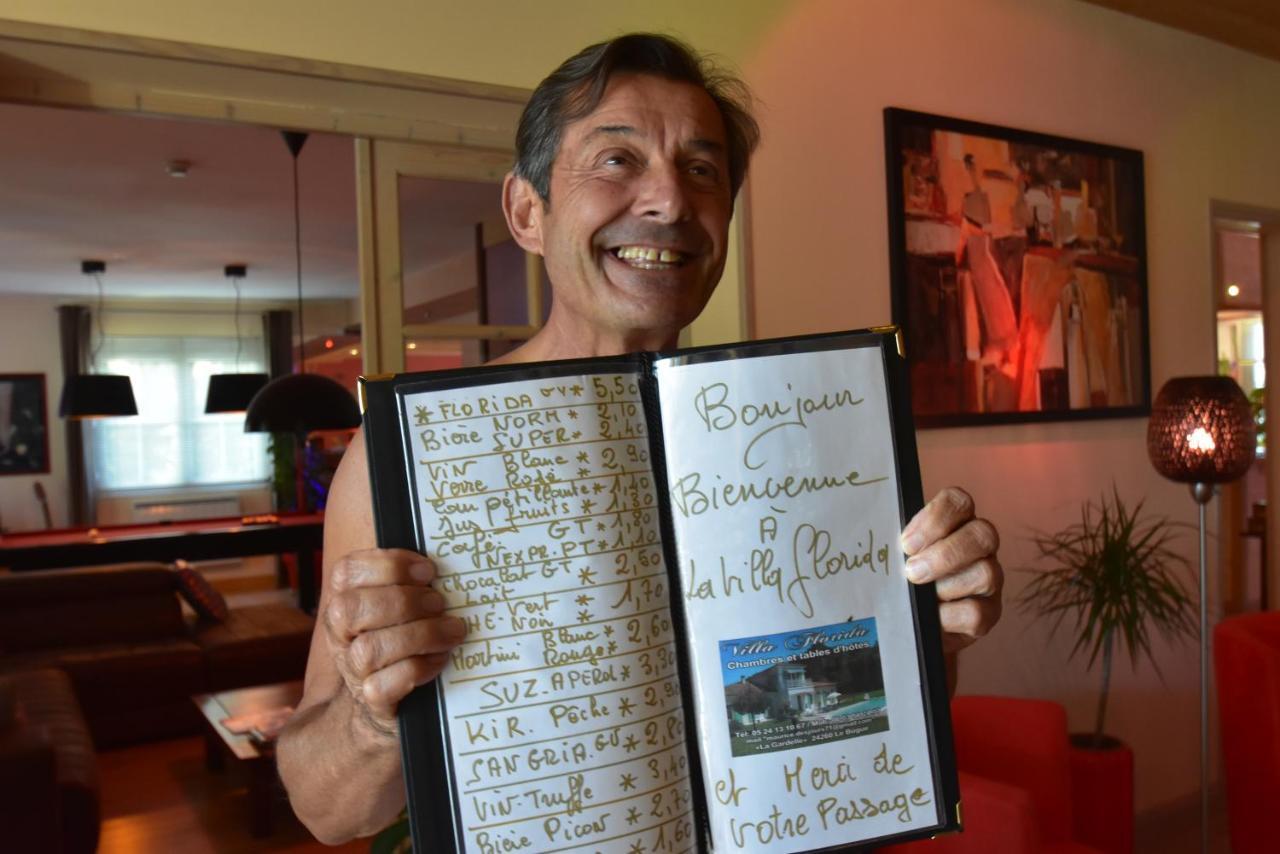 * FLORIDA GV * 5,50
Bière NORM * 2,10
SUPER * 2,40
Vin Blanc * 2,90
Verre Rosé *
Eau pétillante * 1,40
Jus fruits * 1,80
Café GT * 1,80
NEXPR. PT * 1,10
Chocolat GT * 2,50
Lait
THE Vert * 1,70
Noir
Martini Blanc * 2,60
Rouge *
SUZ. APEROL * 3,30
KiR. Pêche * 2,90
SANGRIA. GV * 2,80
VIN-Truffe * 3,40
Bière Picon * 2,70
* 1,60
Bonjour
Bienvenue
À
La Villa Florida
Villa Florida
Chambres et tables d'hôtes
Tél: 05 24 13 10 67
«La Gardelle» 24260 Le Bugue
et Merci de
Votre Passage